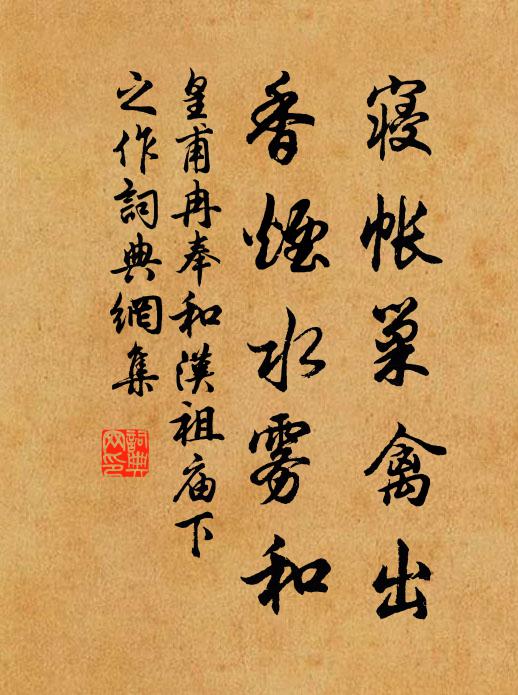 寢帳巢禽出
香煙水雾和
皇甫冉奉和漢祖庙下
之作詞典網集
詞典网印